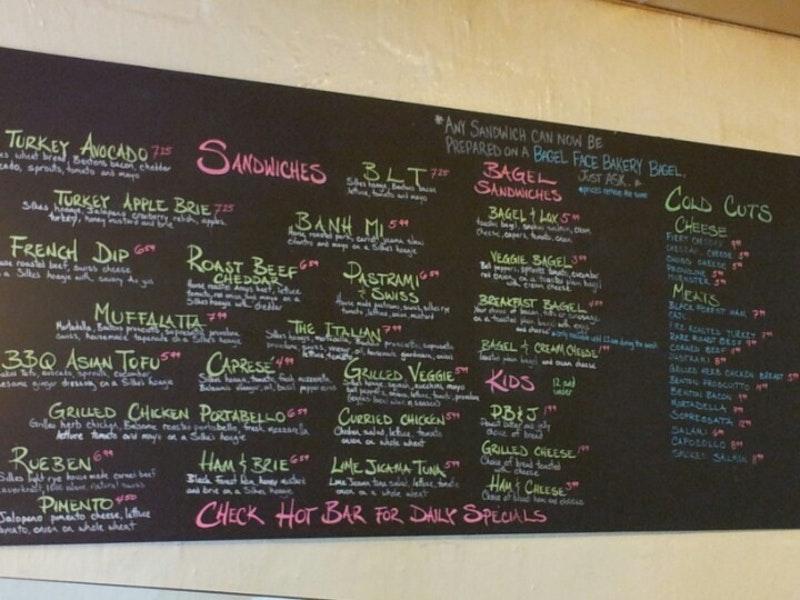 SANDWICHES
TURKEY AVOCADO 7.25
wheat bread, Bentons bacon, cheddar
sprouts, tomato and mayo
TURKEY APPLE BRIE 7.25
Silkes hoagie, Jalapeno cranberry relish, apples,
turkey, honey mustard and brie
FRENCH DIP 6.59
roasted beef, swiss cheese
a Silkes hoagie
MUFFALATTA 7.99
BBQ ASIAN TOFU 5.99
tofu, avocado, sprouts, cucumber
ginger dressing on a Silkes hoagie
GRILLED CHICKEN PORTABELLO 6.59
Grilled herb chicken, Balsamic roasted portobello, fresh mozzarella
lettuce tomato and mayo on a Silkes hoagie
RUEBEN 6.99
Silkes light rye house made corned beef
PIMENTO 4.50
Jalapeno pimento cheese, lettuce
tomato, onion on whole wheat
ROAST BEEF CHEDDAR 6.59
House roasted Angus beef, lettuce
tomato, red onion and mayo on a
Silkes hoagie with cheddar
CAPRESE 4.99
Silkes hoagie, tomato, fresh mozzarella
Balsamic vinegar, oil, basil
HAM & BRIE 6.59
Black Forest Ham, honey mustard
and brie on a Silkes hoagie
BLT 7.25
Silkes hoagie, Bentons bacon
lettuce, tomato and mayo
BANH MI 5.99
House roasted pork, carrot, jicama slaw
cilantro and mayo on a Silkes hoagie
PASTRAMI & SWISS 6.59
House made pastrami, swiss, silkes rye
lettuce, onion, mustard
THE ITALIAN 7.99
GRILLED VEGGIE 5.99
CURRIED CHICKEN 5.99
Chicken salad, lettuce, tomato
onion on whole wheat
LIME JICAMA TUNA 5.99
Lime Jicama tuna salad, lettuce, tomato
onion on a whole wheat
CHECK HOT BAR FOR DAILY SPECIALS
*ANY SANDWICH CAN NOW BE
PREPARED ON A BAGEL FACE BAKERY BAGEL.
JUST ASK. *
*prices remain the same
BAGEL
SANDWICHES
BAGEL & LOX 5.99
toasted bagel, smoked salmon, cream
cheese, capers, tomato, onion
VEGGIE BAGEL 3.99
Bell peppers, sprouts, tomato, cucumber
red onion on a toasted plain bagel
with cream cheese
BREAKFAST BAGEL 4.99
Your choice of bacon, ham or sausage
on a toasted plain bagel with eggs
and cheese *only available until 12 pm during the week
BAGEL & CREAM CHEESE 1.99
toasted plain bagel and cream cheese
KIDS 12 and under
PB & J 1.99
Peanut butter and jelly
choice of bread
GRILLED CHEESE 1.99
Choice of bread toasted
with cheese
HAM & CHEESE 3.99
Choice of bread ham and cheese
COLD CUTS
CHEESE
FIERY CHEDDAR
CHEDDAR CHEESE
SWISS CHEESE
PROVOLONE
MUENSTER
MEATS
BLACK FOREST HAM 7.99
CAJU
FIRE ROASTED TURKEY 7.99
RARE ROAST BEEF 9.99
CORNED BEEF
PASTRAMI
GRILLED HERB CHICKEN BREAST
BENTON PROSCIUTTO
BENTON BACON
MORTADELLA
SOPRESSATA
SALAMI
CAPOCOLLO
SMOKED SALMON